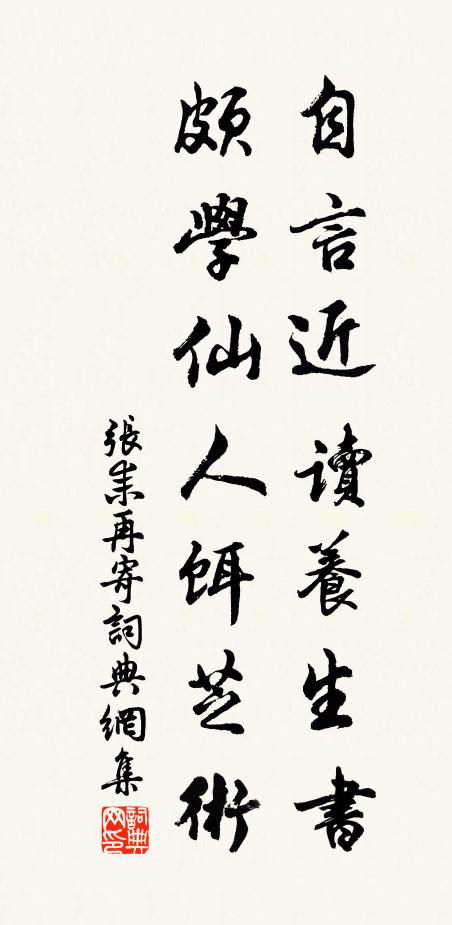 自言近讀養生書
頗學仙人餌芝術
張耒再寄詞典網集
詞典網印